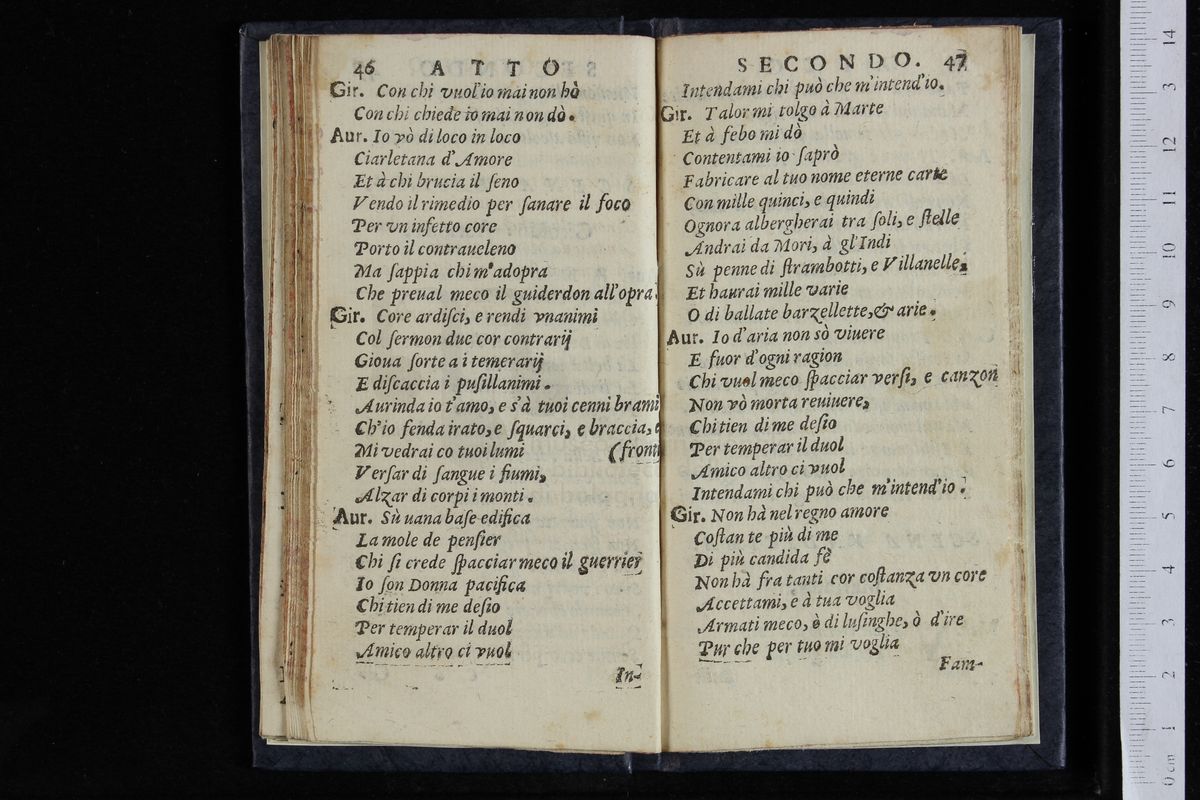 46 ATTO
Gir. Con chi vuol'io mai non hò
Con chi chiede io mai non dò.
Aur. Io vò di loco in loco
Ciarletana d'Amore
Et à chi brucia il ſeno
Vendo il rimedio per ſanare il foco
Per vn infetto core
Porto il contraueleno
Ma ſappia chi m'adopra
Che preual meco il guiderdon all'opra.
Gir. Core ardiſci, e rendi vnanimi
Col ſermon due cor contrarij
Gioua ſorte a i temerarij
E diſcaccia i puſillanimi.
Aurinda io t'amo, e s'à tuoi cenni brami
Ch'io fenda irato, e ſquarci, e braccia, e
Mi vedrai co tuoi lumi (fronti
Verſar di ſangue i fiumi,
Alzar di corpi i monti.
Aur. Sù uana baſe edifica
La mole de penſier
Chi ſi crede ſpacciar meco il guerrier
Io ſon Donna pacifica
Chi tien di me deſio
Per temperar il duol
Amico altro ci vuol
In-
SECONDO. 47
Intendami chi può che m'intend'io.
Gir. Talor mi tolgo à Marte
Et à febo mi dò
Contentami io ſaprò
Fabricare al tuo nome eterne carte
Con mille quinci, e quindi
Ognora albergherai tra ſoli, e ſtelle
Andrai da Mori, à gl'Indi
Sù penne di ſtrambotti, e Villanelle,
Et haurai mille varie
O di ballate barzellette, & arie.
Aur. Io d'aria non sò viuere
E fuor d'ogni ragion
Chi vuol meco ſpacciar verſi, e canzon
Non vò morta reuiuere,
Chi tien di me deſio
Per temperar il duol
Amico altro ci vuol
Intendami chi può che m'intend'io.
Gir. Non hà nel regno amore
Coſtan te più di me
Di più candida fè
Non hà fra tanti cor coſtanza vn core
Accettami, e à tua voglia
Armati meco, ò di luſinghe, ò d'ire
Pur che per tuo mi voglia
Fam-
0 cm 1 2 3 4 5 6 7 8 9 10 11 12 13 14